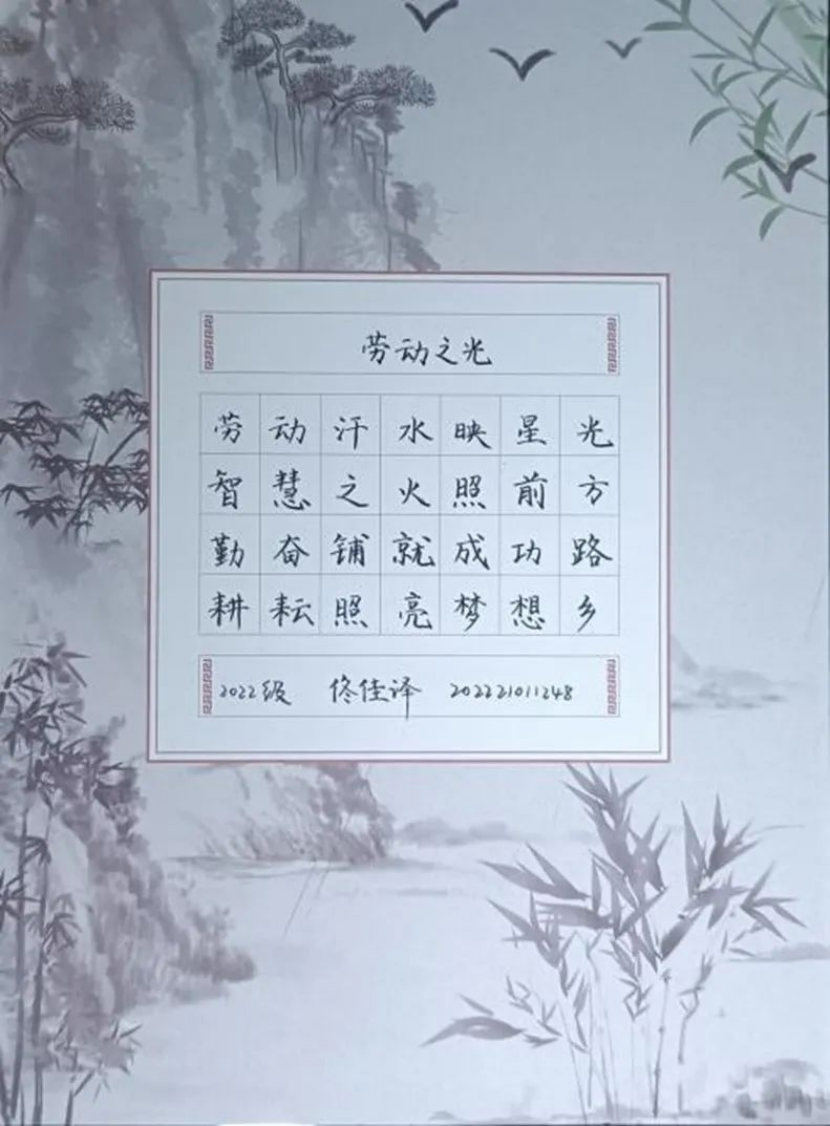 劳动之光
劳动汗水映星光
智慧之火照前方
勤奋铺就成功路
耕耘照亮梦想乡
2022级 佟佳译 202221011248